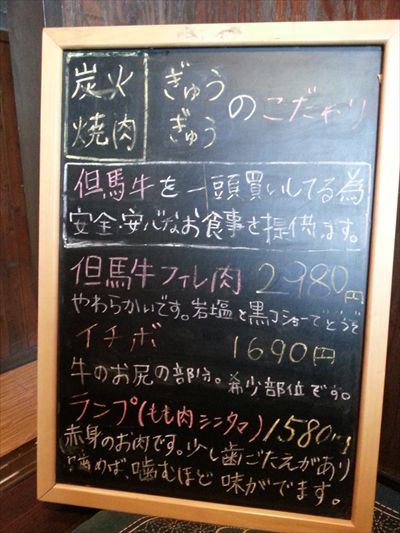 炭火 ぎゅう
焼肉 ぎゅう のこだわり
但馬牛を一頭買いしてる為
安全・安心なお食事を提供します。
但馬牛フィレ肉 2980円
やわらかいです。岩塩と黒コショーでどうぞ
イチボ 1690円
牛のお尻の部分。希少部位です。
ランプ(もも肉シンタマ) 1580円
赤身のお肉です。少し歯ごたえがあり
噛めば、噛むほど味がでます。